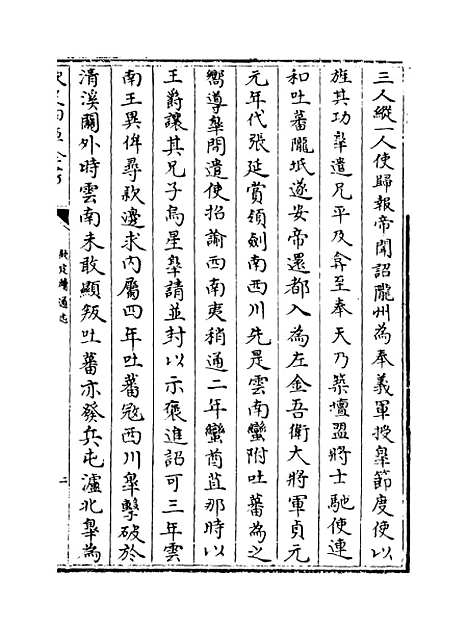 三人縱一人使歸報帝聞詔隴州為奉義軍授臯節度使以
旌其功臯遣兄平及弇至奉天乃築壇盟將士馳使連
和吐蕃隴坻遂安帝還都入為左金吾衛大將軍貞元
元年代張延賞領劍南西川先是雲南蠻附吐蕃為之
嚮導臯間遣使招諭西南夷稍通二年蠻酋苴那時以
王爵讓其兄子烏星臯請並封以示褒進詔可三年雲
南王異牟尋款邊求內屬四年吐蕃寇西川臯擊破於
清溪關外時雲南未敢顯叛吐蕃亦發兵屯瀘北臯為
欽定續通志
二